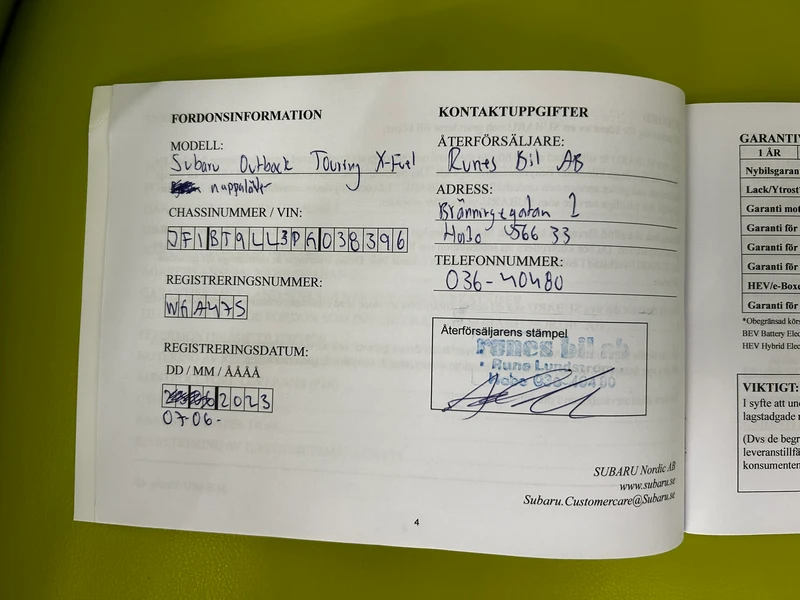 FORDONSINFORMATION
MODELL:
Subaru Outback Touring X-Fuel
nappaläder
CHASSINUMMER / VIN:
JF1BT9LL3PG038396
REGISTRERINGSNUMMER:
REGISTRERINGSDATUM:
DD / MM / ÅÅÅÅ
2023
07-06-
KONTAKTUPPGIFTER
ÅTERFÖRSÄLJARE:
Runes Bil AB
ADRESS:
Bränningegatan 2
Habo 566 33
TELEFONNUMMER:
036-40480
Återförsäljarens stämpel
runes bil ab
Rune Lundström
Habo 036-404 00
SUBARU Nordic AB
www.subaru.se
Subaru.Customercare@Subaru.se
4
GARANTI
1 ÅR
Nybilsgaran
Lack/Ytrost
Garanti mot
Garanti för
Garanti för
Garanti för
HEV/e-Boxe
Garanti för
*Obegränsad körs
BEV Battery Elec
HEV Hybrid Elect
VIKTIGT:
I syfte att und
lagstadgade r
(Dvs de begr
leveranstillfä
konsumenten